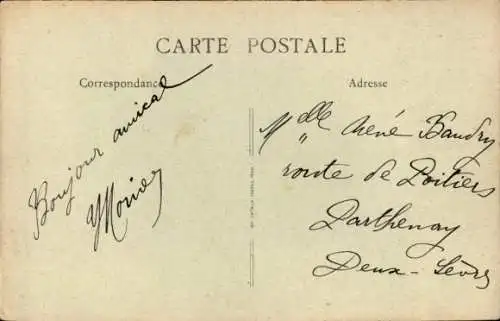 CARTE POSTALE
Correspondance
Adresse
Bonjour amical
Melle Réné Baudry
route de Poitiers
Parthenay
Deux-Sèvres